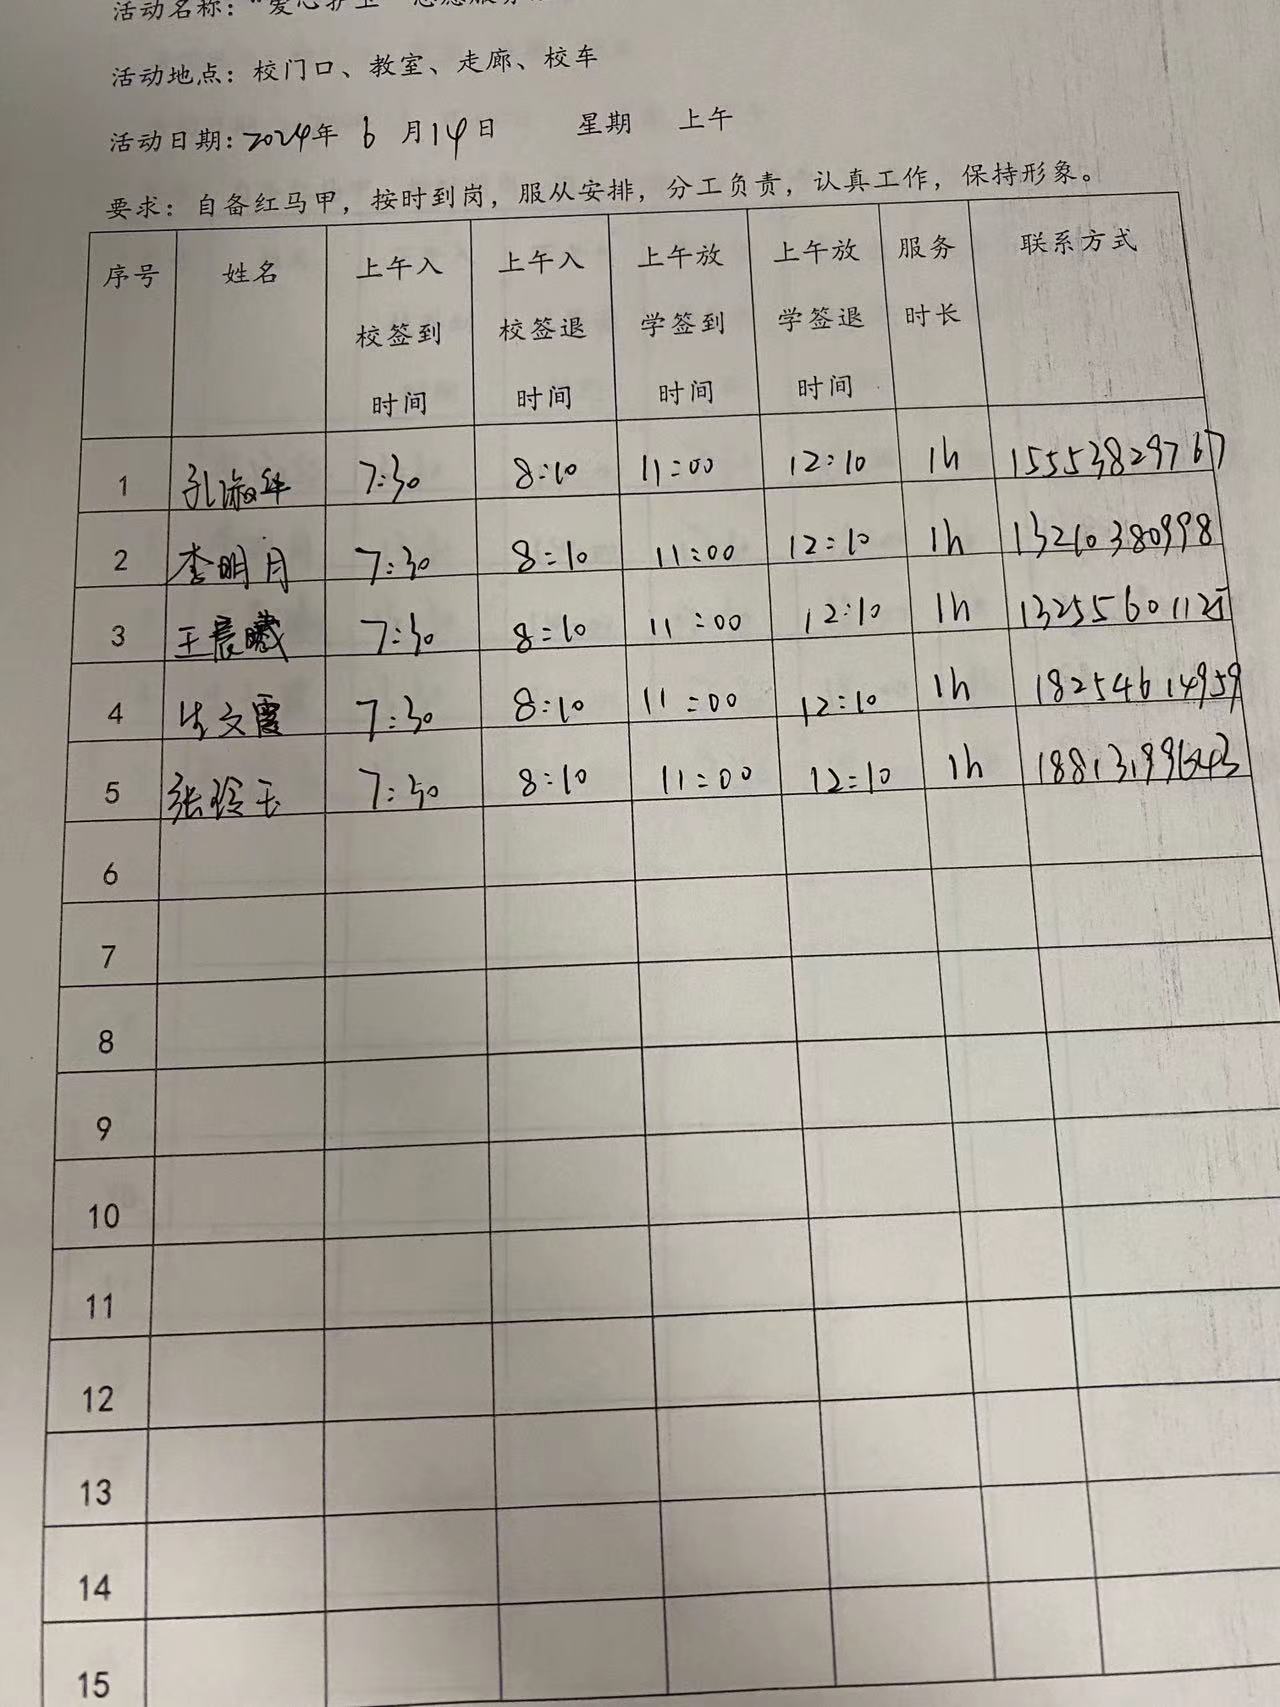 活动名称："爱心护卫"志愿服务
活动地点：校门口、教室、走廊、校车
活动日期：2024年 6 月14日 星期 上午
要求：自备红马甲，按时到岗，服从安排，分工负责，认真工作，保持形象。
序号 姓名 上午入校签到时间 上午入校签退时间 上午放学签到时间 上午放学签退时间 服务时长 联系方式
1 孔淑华 7:30 8:10 11:00 12:10 1h 15553829767
2 李明月 7:30 8:10 11:00 12:10 1h 13210380998
3 王晨曦 7:30 8:10 11:00 12:10 1h
4 文霞 7:30 8:10 11:00 12:10 1h 18254614959
5 张玲玉 7:30 8:10 11:00 12:10 1h
6
7
8
9
10
11
12
13
14
15